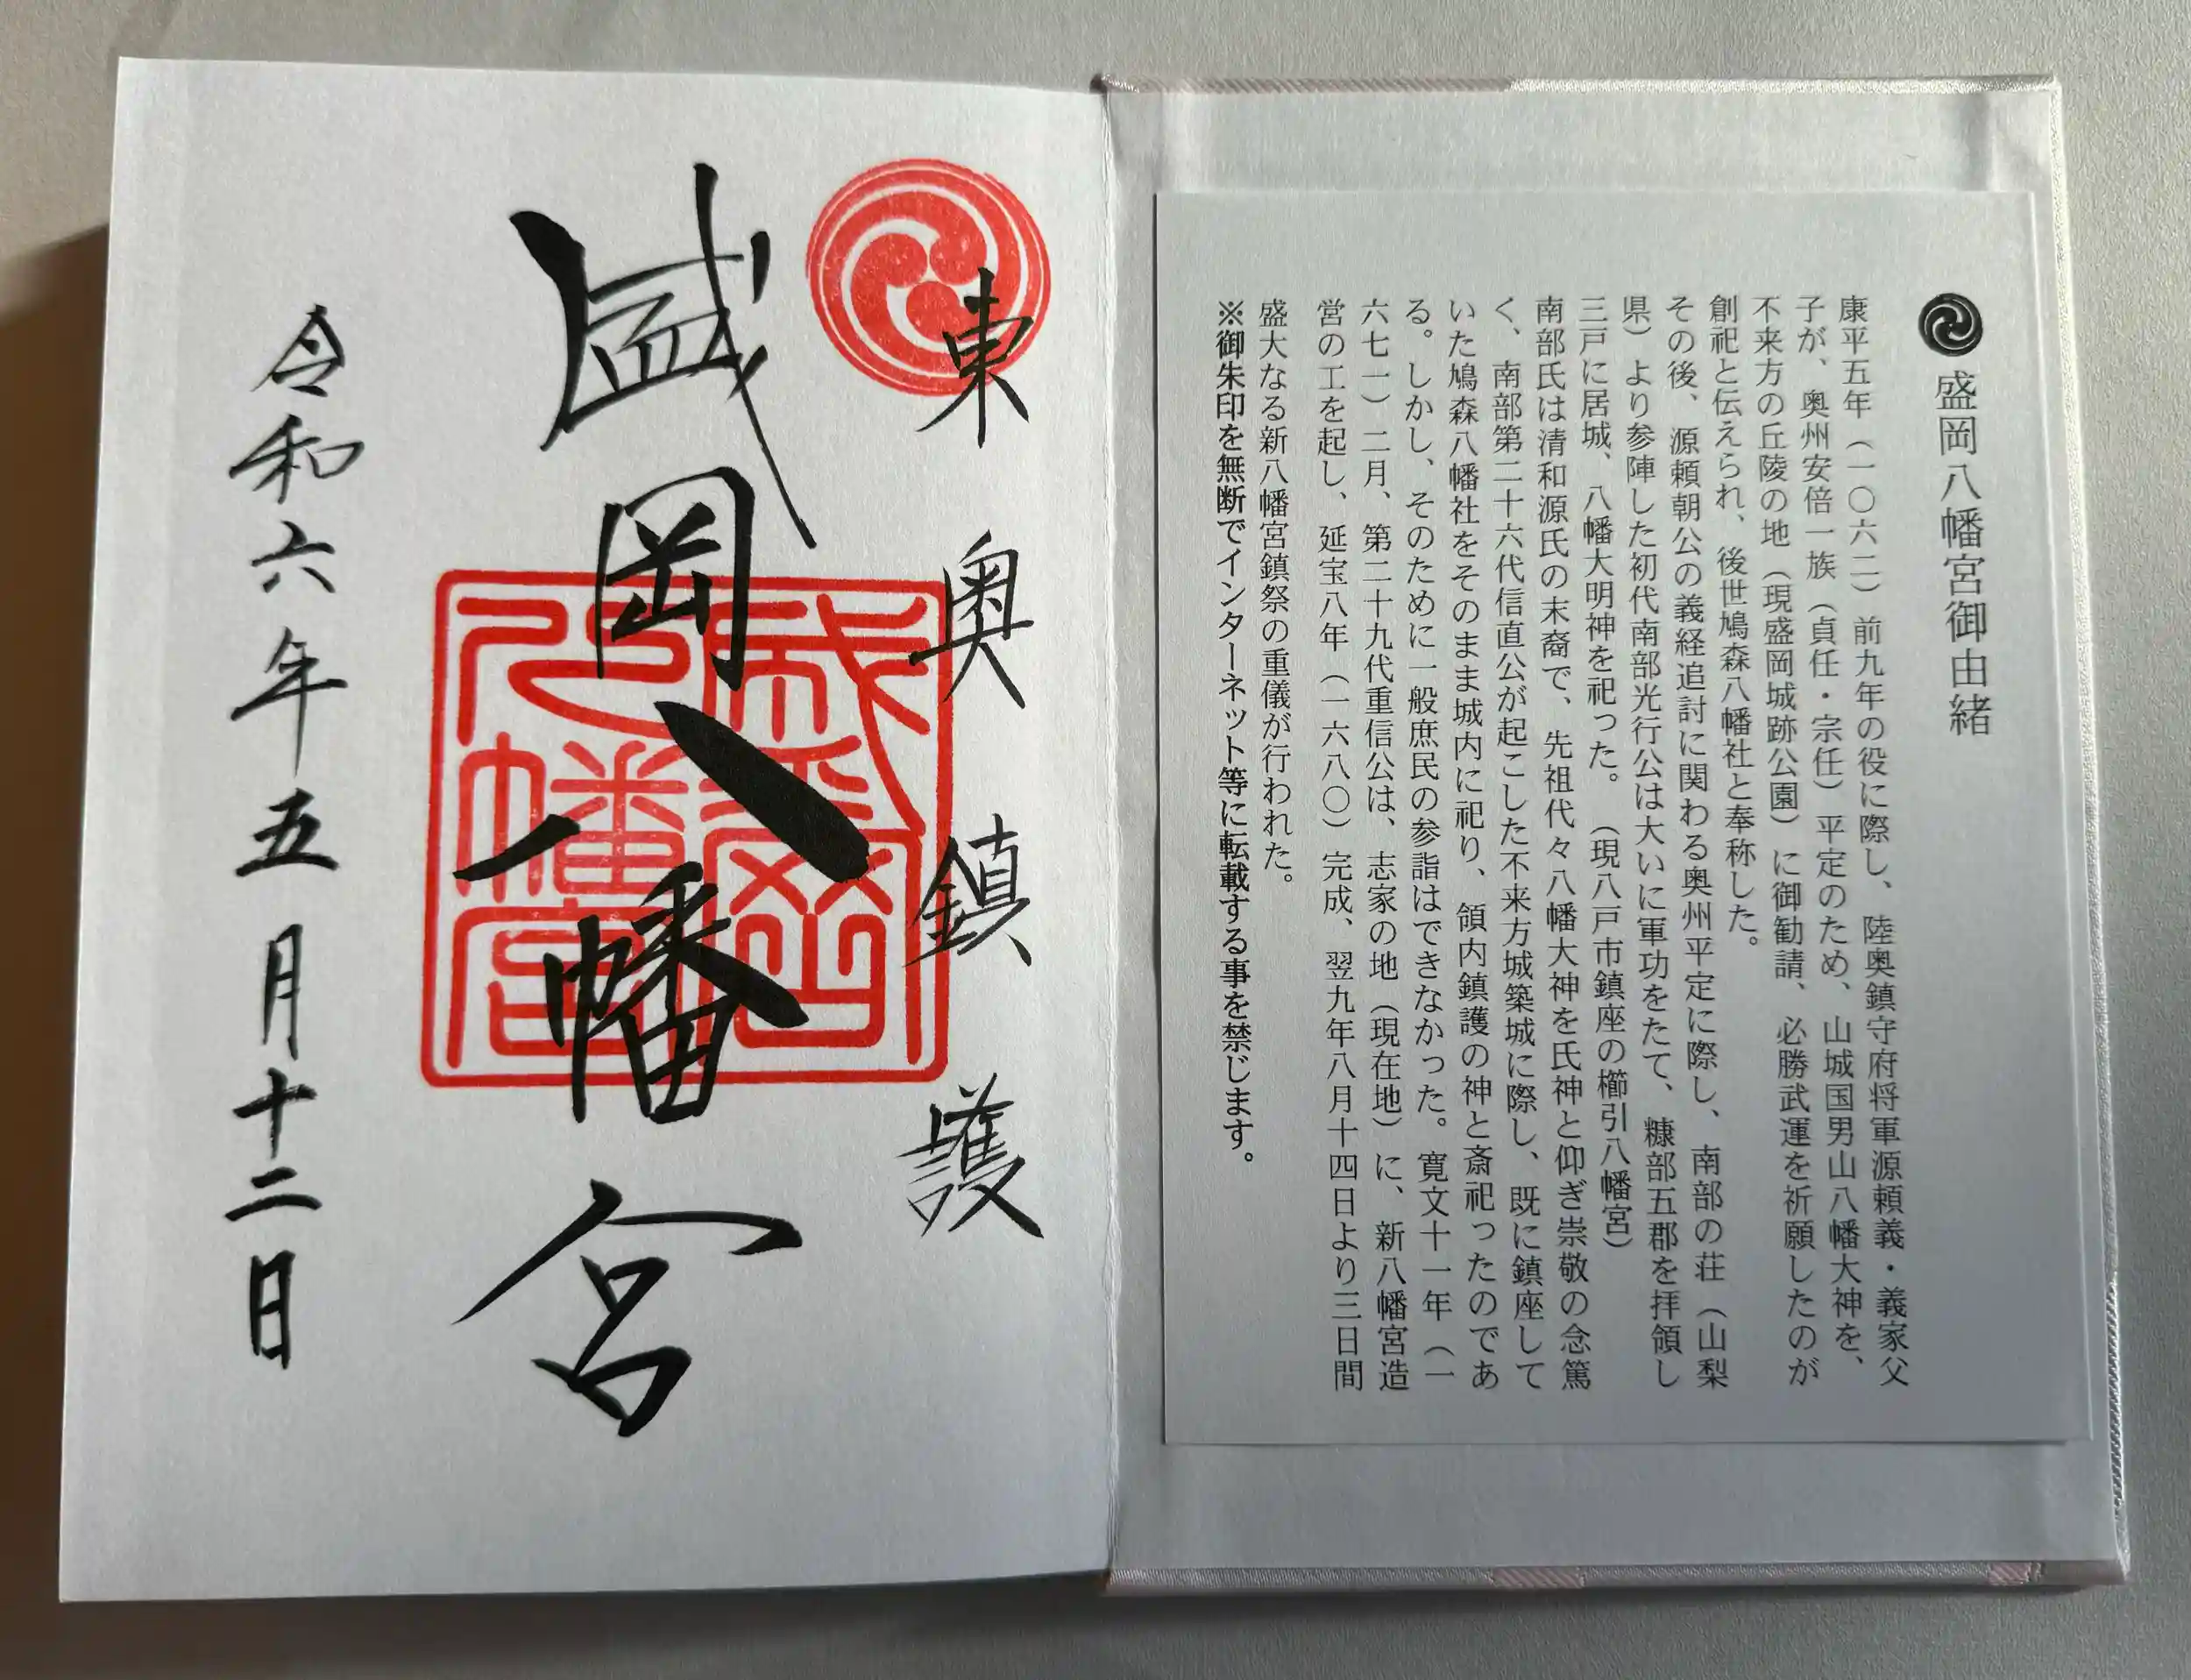 盛岡八幡宮御由緒
康平五年（一〇六二）前九年の役に際し、陸奥鎮守府将軍源頼義・義家父
子が、奥州安倍一族（貞任・宗任）平定のため、山城国男山八幡大神を、
不来方の丘陵の地（現盛岡城跡公園）に御勧請、必勝武運を祈願したのが
創祀と伝えられ、後世鳩森八幡社と奉称した。
その後、源頼朝公の義経追討に関わる奥州平定に際し、南部の荘（山梨
県）より参陣した初代南部光行公は大いに軍功をたて、糠部五郡を拝領し
三戸に居城、八幡大明神を祀った。（現八戸市鎮座の櫛引八幡宮）
南部氏は清和源氏の末裔で、先祖代々八幡大神を氏神と仰ぎ崇敬の念篤
く、南部第二十六代信直公が起こした不来方城築城に際し、既に鎮座して
いた鳩森八幡社をそのまま城内に祀り、領内鎮護の神と斎祀ったのであ
る。しかし、そのために一般庶民の参詣はできなかった。寛文十一年（一
六七一）二月、第二十九代重信公は、志家の地（現在地）に、新八幡宮造
営の工を起し、延宝八年（一六八〇）完成、翌九年八月十四日より三日間
盛大なる新八幡宮鎮祭の重儀が行われた。
※御朱印を無断でインターネット等に転載する事を禁じます。
東奥鎮護
盛岡八幡宮
盛岡
八幡宮
令和六年五月十二日